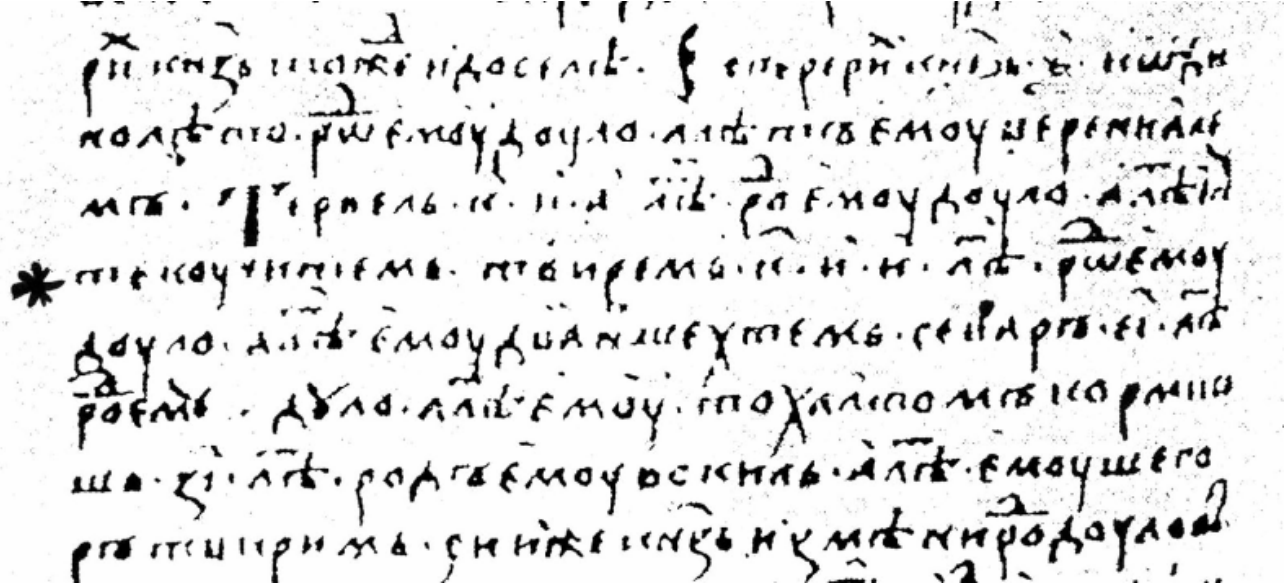 рꙵи кнѧз҃ь тоже идоселѣ · есперерꙵи кнѧз҃ь · ѯ҃ · и ѡдⷩи
нолѣто · рⷣѡ емоу доуло · а лѣтъ емоу верениале
мъ · Тервель · к҃ · и · а҃ лѣⷮ · рⷣо емоу доуло · а лѣⷮ
текоучитемь · твиремь · к҃ · и · и҃ · лѣⷮ · рⷣѡ емоу
доуло · а лѣⷮ емоу дваншехтемь · севаръ · е҃і · лѣⷮ
рⷣо емꙋ · дꙋло · а лѣⷮ емоу · тохалтомъ кормисо
шь · з҃і · лѣⷮ · родъ емоу вокиль · а лѣⷮ емоу шего
рътвиримь · сиже кнѧз҃ь измѣни рⷣо доуловъ